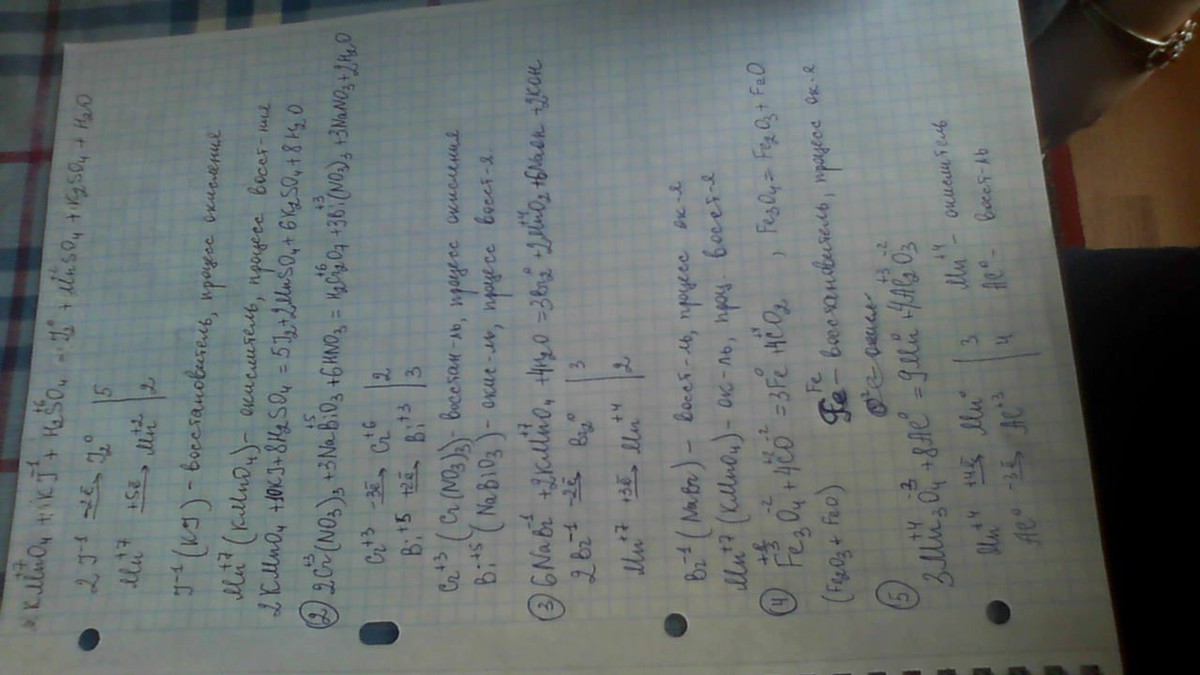 KMnO₄ + KJ⁻¹ + H₂SO₄ = J₂⁰ + MnSO₄ + K₂SO₄ + H₂O
2J⁻¹ -2ē → J₂⁰ | 5
Mn⁺⁷ +5ē → Mn⁺² | 2
J⁻¹ (KJ) – восстановитель, процесс окисления
Mn⁺⁷ (KMnO₄) – окислитель, процесс восст-ния
2KMnO₄ + 10KJ + 8H₂SO₄ = 5J₂ + 2MnSO₄ + 6K₂SO₄ + 8H₂O
② 2Cr⁺³(NO₃)₃ + 3NaBi⁺⁵O₃ + 6HNO₃ = H₂Cr₂⁺⁶O₇ + 3Bi⁺³(NO₃)₃ + 3NaNO₃ + 2H₂O
Cr⁺³ -3ē → Cr⁺⁶ | 2
Bi⁺⁵ +2ē → Bi⁺³ | 3
Cr⁺³ (Cr(NO₃)₃) – восстан-ль, процесс окисления
Bi⁺⁵ (NaBiO₃) – окис-ль, процесс восст-я
③ 6NaBr⁻¹ + 2KMn⁺⁷O₄ + 4H₂O = 3Br₂⁰ + 2Mn⁺⁴O₂ + 6NaOH + 2KOH
2Br⁻¹ -2ē → Br₂⁰ | 3
Mn⁺⁷ +3ē → Mn⁺⁴ | 2
Br⁻¹ (NaBr) – восст-ль, процесс ок-я
Mn⁺⁷ (KMnO₄) – ок-ль, проц. восст-я
④ Fe₃O₄⁻² + 4C⁺²O⁻² = 3Fe⁰ + 4C⁺⁴O₂, Fe₃O₄ = Fe₂O₃ + FeO
(Fe₂O₃ + FeO) Fe – восстановитель, процесс ок-я
⑤ 3Mn₃⁺⁴O₄ + 8Al⁰ = 9Mn⁰ + 4Al₂⁺³O₃⁻²
Mn⁺⁴ +4ē → Mn⁰ | 3 Mn⁺⁴ – окислитель
Al⁰ -3ē → Al⁺³ | 4 Al⁰ – восст-ль